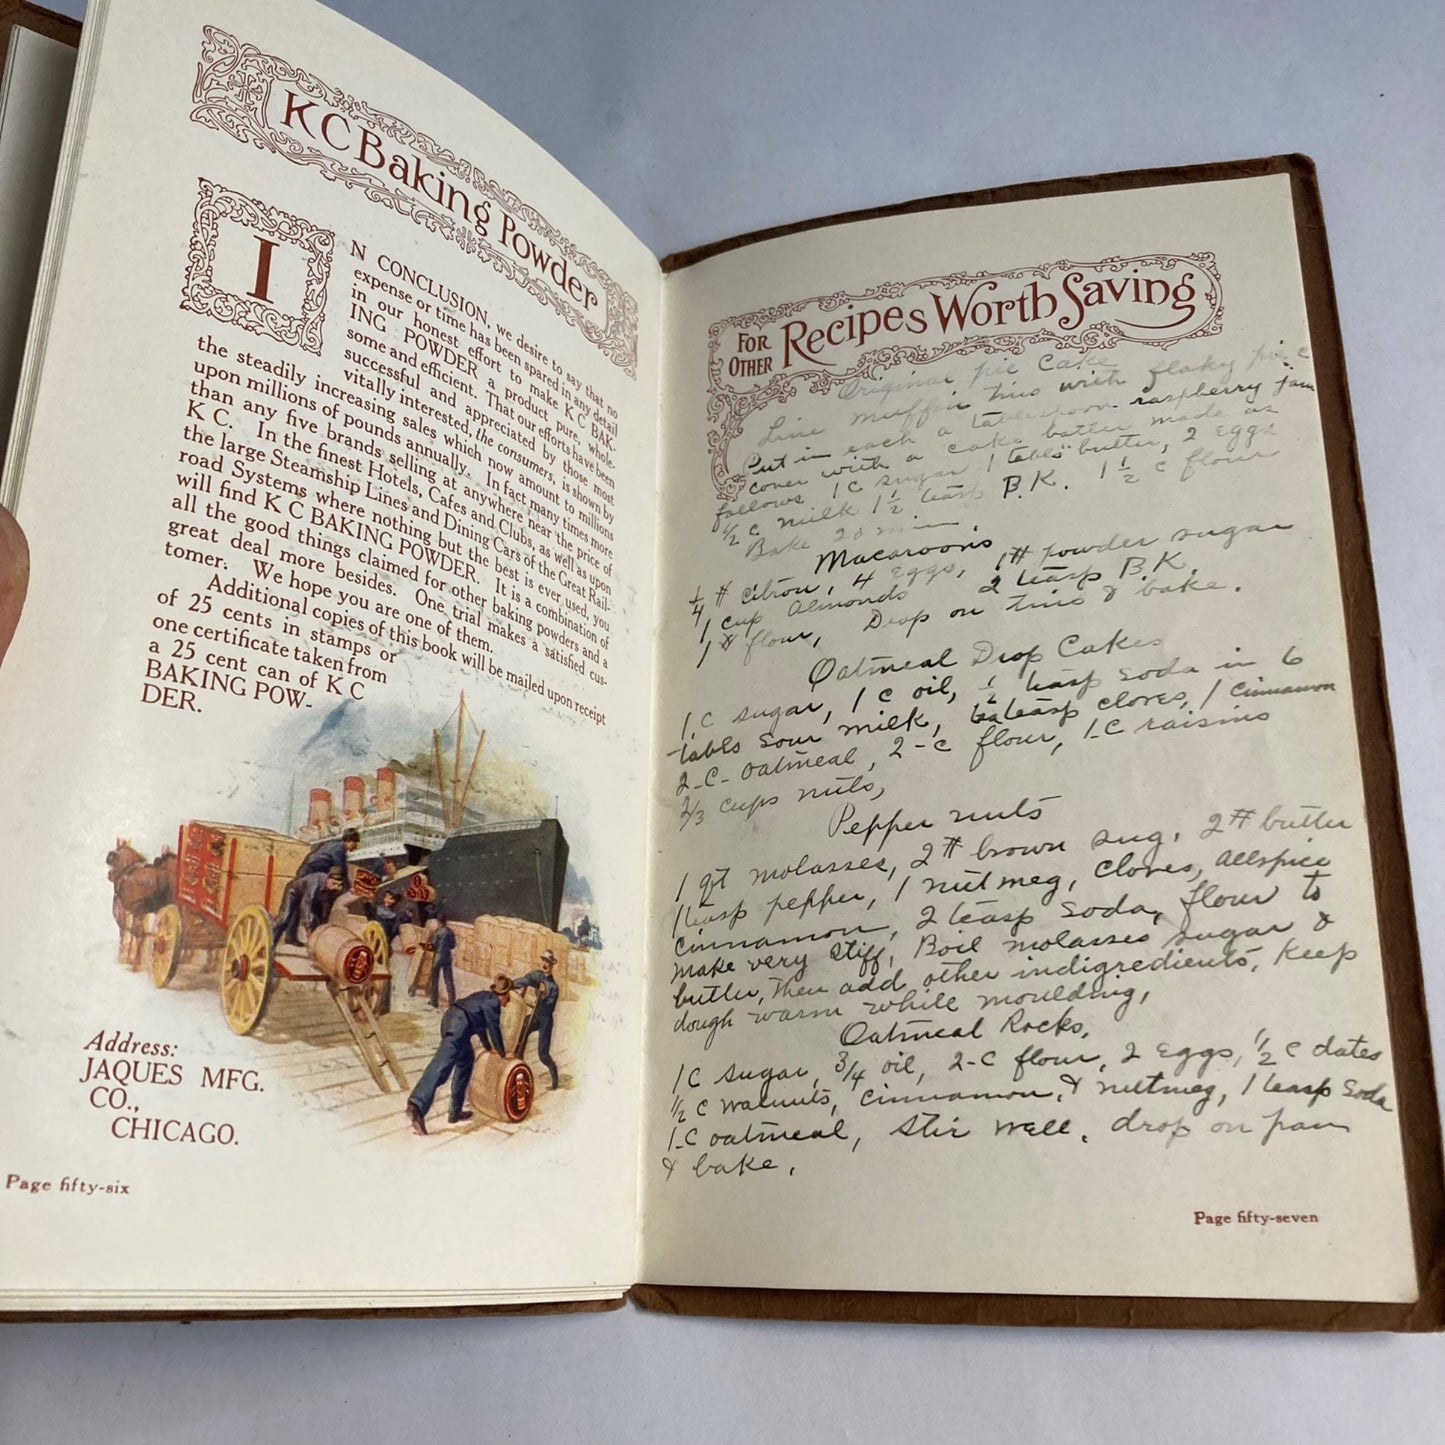 K C Baking Powder
IN CONCLUSION, we desire to say that no
expense or time has been spared in any detail
in our honest effort to make K C BAK-
ING POWDER a product pure, whole-
some and efficient. That our efforts have been
successful and appreciated by those most
vitally interested, the consumers, is shown by
the steadily increasing sales which now amount to millions
upon millions of pounds annually. In fact many times more
than any five brands selling at anywhere near the price of
K C. In the finest Hotels, Cafes and Clubs, as well as upon
the large Steamship Lines and Dining Cars of the Great Rail-
road Systems where nothing but the best is ever used, you
will find K C BAKING POWDER. It is a combination of
all the good things claimed for other baking powders and a
great deal more besides. One trial makes a satisfied cus-
tomer. We hope you are one of them.
Additional copies of this book will be mailed upon receipt
of 25 cents in stamps or
one certificate taken from
a 25 cent can of K C
BAKING POW-
DER.
Address:
JAQUES MFG.
CO.,
CHICAGO.
Page fifty-six
FOR OTHER Recipes Worth Saving
Original pie Cake
Line muffin tins with flaky pie c
Put in each a tablespoon raspberry jam
cover with a cake batter made as
follows 1 c sugar 1 tabls butter, 2 eggs
1/2 c milk 1 1/2 teasp B.K. 1 1/2 c flour
Bake 20 min.
Macaroons
1/4 # citron, 4 eggs, 1# powder sugar
1 cup Almonds 2 teasp B.K.
1 # flour, Drop on tins & bake.
Oatmeal Drop Cakes
1 c sugar, 1 c oil, 1/2 teasp soda in 6
tabls sour milk, teasp cloves, 1 cinnamon
2-C- oatmeal, 2-c flour, 1-c raisins
2/3 cups nuts,
Pepper nuts
1 qt molasses, 2# brown sug, 2# butter
1 teasp pepper, 1 nutmeg, cloves, allspice
cinnamon, 2 teasp soda, flour to
make very stiff, Boil molasses sugar &
butter, then add other indigredients, Keep
dough warm while moulding,
Oatmeal Rocks,
1 C sugar, 3/4 oil, 2-C flour, 2 eggs, 1/2 c dates
1/2 c walnuts, cinnamon, & nutmeg, 1 teasp soda
1-C oatmeal, stir well, drop on pan
& bake,
Page fifty-seven